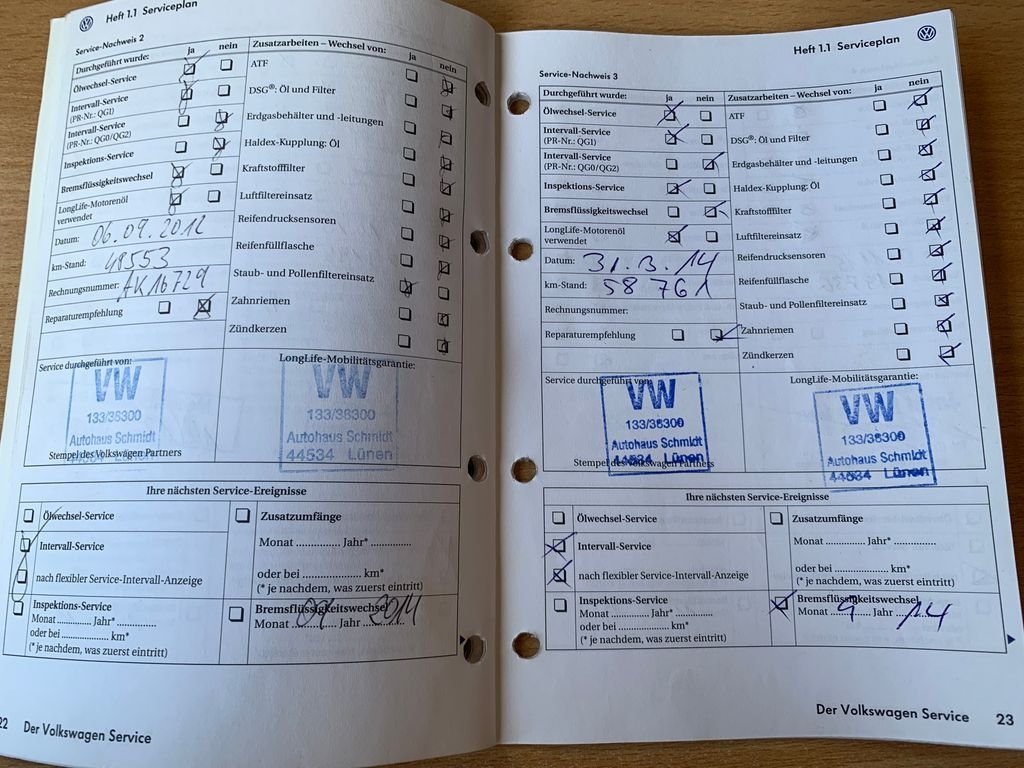 Heft 1.1 Serviceplan
Service-Nachweis 2
Durchgeführt wurde: ja nein
Ölwechsel-Service
Intervall-Service
(PR-Nr.: QG1)
Intervall-Service
(PR-Nr.: QG0/QG2)
Inspektions-Service
Bremsflüssigkeitswechsel
LongLife-Motorenöl
verwendet
Datum: 06.09.2012
km-Stand: 48553
Rechnungsnummer: AK16729
Reparaturempfehlung
Zusatzarbeiten – Wechsel von: ja nein
ATF
DSG®: Öl und Filter
Erdgasbehälter und -leitungen
Haldex-Kupplung: Öl
Kraftstofffilter
Luftfiltereinsatz
Reifendrucksensoren
Reifenfüllflasche
Staub- und Pollenfiltereinsatz
Zahnriemen
Zündkerzen
Service durchgeführt von:
VW
133/38300
Autohaus Schmidt
44534 Lünen
Stempel des Volkswagen Partners
LongLife-Mobilitätsgarantie:
VW
133/38300
Autohaus Schmidt
44534 Lünen
Ihre nächsten Service-Ereignisse
Ölwechsel-Service
Intervall-Service
nach flexibler Service-Intervall-Anzeige
Inspektions-Service
Monat ............ Jahr* ............
oder bei ................. km*
(* je nachdem, was zuerst eintritt)
Zusatzumfänge
Monat ............. Jahr* ............
oder bei .................... km*
(* je nachdem, was zuerst eintritt)
Bremsflüssigkeitswechsel
Monat 09 Jahr 2014
22 Der Volkswagen Service
Heft 1.1 Serviceplan
Service-Nachweis 3
Durchgeführt wurde: ja nein
Ölwechsel-Service
Intervall-Service
(PR-Nr.: QG1)
Intervall-Service
(PR-Nr.: QG0/QG2)
Inspektions-Service
Bremsflüssigkeitswechsel
LongLife-Motorenöl
verwendet
Datum: 31.3.14
km-Stand: 58 761
Rechnungsnummer:
Reparaturempfehlung
Zusatzarbeiten – Wechsel von: ja nein
ATF
DSG®: Öl und Filter
Erdgasbehälter und -leitungen
Haldex-Kupplung: Öl
Kraftstofffilter
Luftfiltereinsatz
Reifendrucksensoren
Reifenfüllflasche
Staub- und Pollenfiltereinsatz
Zahnriemen
Zündkerzen
Service durchgeführt von:
VW
133/38300
Autohaus Schmidt
44534 Lünen
Stempel des Volkswagen Partners
LongLife-Mobilitätsgarantie:
VW
133/38300
Autohaus Schmidt
44534 Lünen
Ihre nächsten Service-Ereignisse
Ölwechsel-Service
Intervall-Service
nach flexibler Service-Intervall-Anzeige
Inspektions-Service
Monat ............ Jahr* ............
oder bei ................. km*
(* je nachdem, was zuerst eintritt)
Zusatzumfänge
Monat ............. Jahr* ............
oder bei .................... km*
(* je nachdem, was zuerst eintritt)
Bremsflüssigkeitswechsel
Monat 9 Jahr 14
Der Volkswagen Service 23